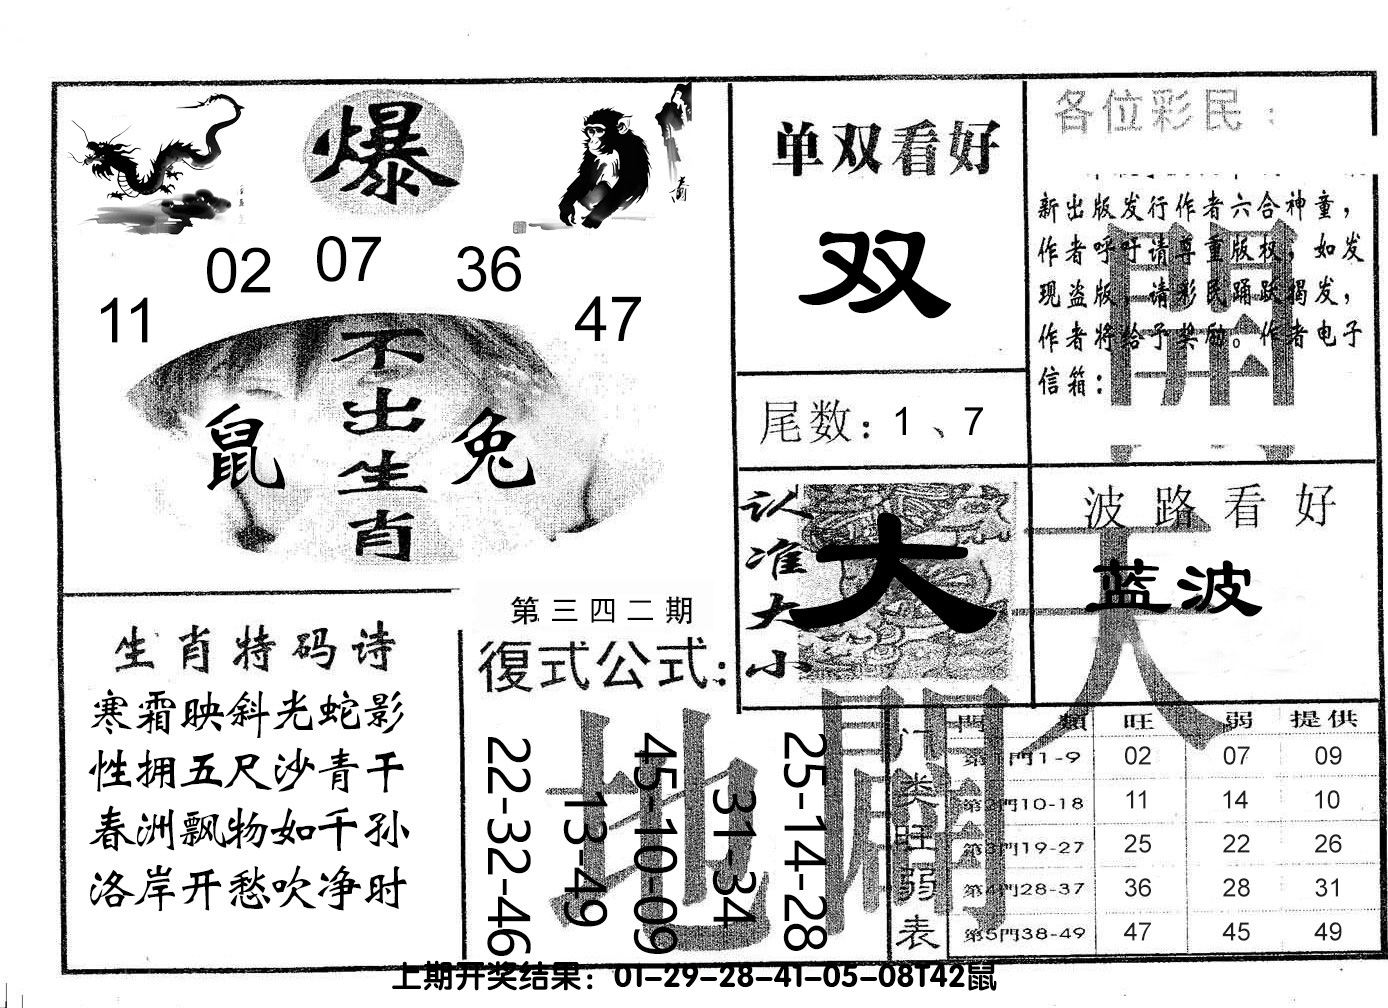 爆
02 07 36
11 47
不出生肖
鼠 兔
生肖特码诗
寒霜映斜光蛇影
性拥五尺沙青干
春洲飘物如千孙
洛岸开愁吹净时
第三四二期
復式公式：
22-32-46
13-49
45-10-09
31-34
25-14-28
单双看好
双
尾数：1、7
认准大小
大
各位彩民：
新出版发行作者六合神童，
作者呼吁请尊重版权，如发
现盗版，请彩民踊跃揭发，
作者将给予奖励。作者电子
信箱：
波路看好
蓝波
天
地
門類 旺 弱 提供
第1門1-9 02 07 09
第2門10-18 11 14 10
第3門19-27 25 22 26
第4門28-37 36 28 31
第5門38-49 47 45 49
门类旺弱表
上期开奖结果：01-29-28-41-05-08T42鼠